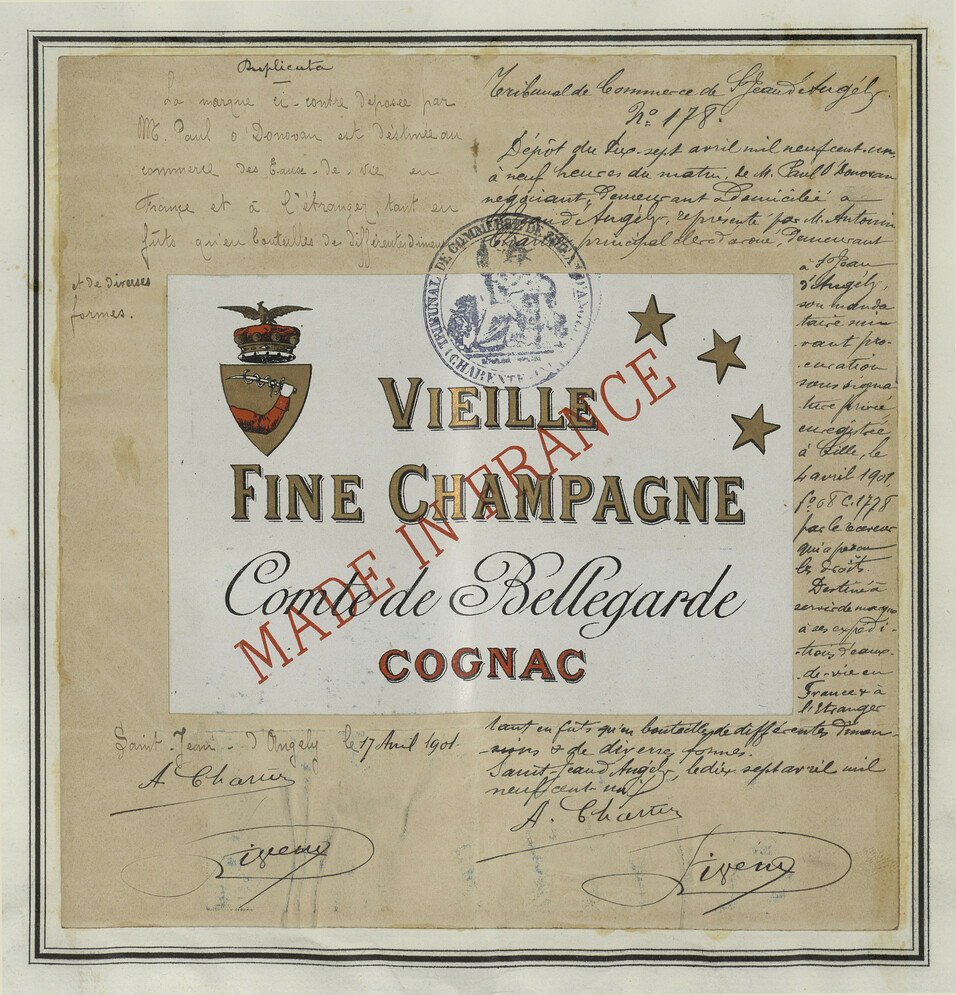 Duplicata
La marque ci-contre déposée par
M. Paul O'Donovan est déstinée au
commerce des Eaux-de-vie en
France et à l'étranger, tant en
fûts qu'en bouteilles de différentes dimen
et de diverses
formes.
Tribunal de Commerce de St Jean d'Angély.
No 178.
Dépôt du dix-sept avril mil neuf cent un
à neuf heures du matin, de M. Paul O'Donovan
négociant, demeurant & domicilié à
d'Angély, représenté par M. Antonin
principal clerc d'avoué, demeurant
à St Jean
d'Angély,
son manda
taire sui
vant pro-
curation
sous signa
ture privée
enregistrée
à Ville, le
4 avril 1901,
fo 68 C. 1778
par le receveur
qui a perçu
les droits.
Destinée à
servir de marque
à ses expédi-
tions d'eaux-
de-vie en
France & à
l'Etranger
tant en fûts qu'en bouteilles de différentes dimen
-sions & de diverses formes.
Saint-Jean d'Angély, le dix-sept avril mil
neuf cent un
A. Chartier
TRIBUNAL DE COMMERCE DE ST JEAN D'ANGELY
(CHARENTE-INF
VIEILLE
FINE CHAMPAGNE
Comte de Bellegarde
COGNAC
MADE IN FRANCE
Saint-Jean-d'Angély le 17 Avril 1901.
A Chartier